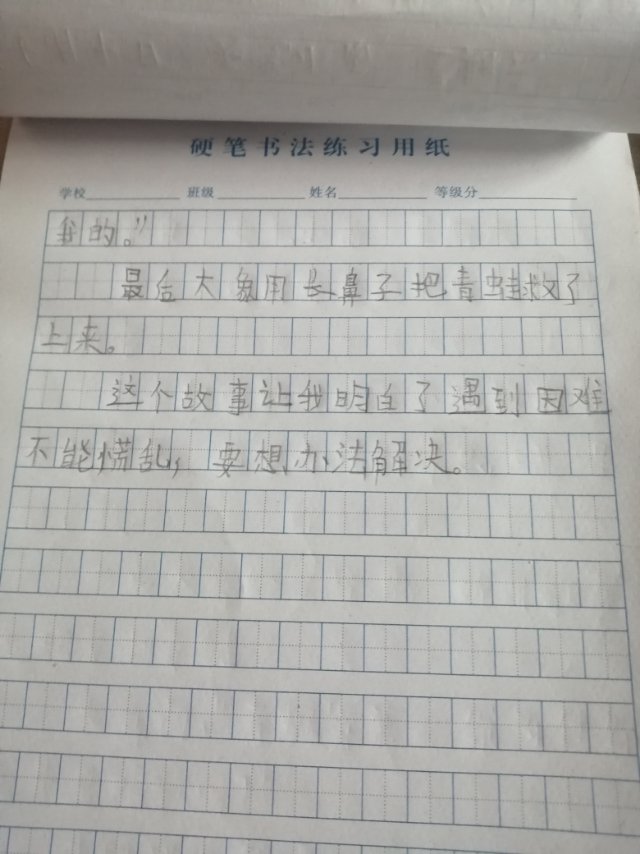 硬笔书法练习用纸
学校 班级 姓名 等级分
我的。”
最后大象用长鼻子把青蛙救了
上来。
这个故事让我明白了遇到因难
不能慌乱，要想办法解决。